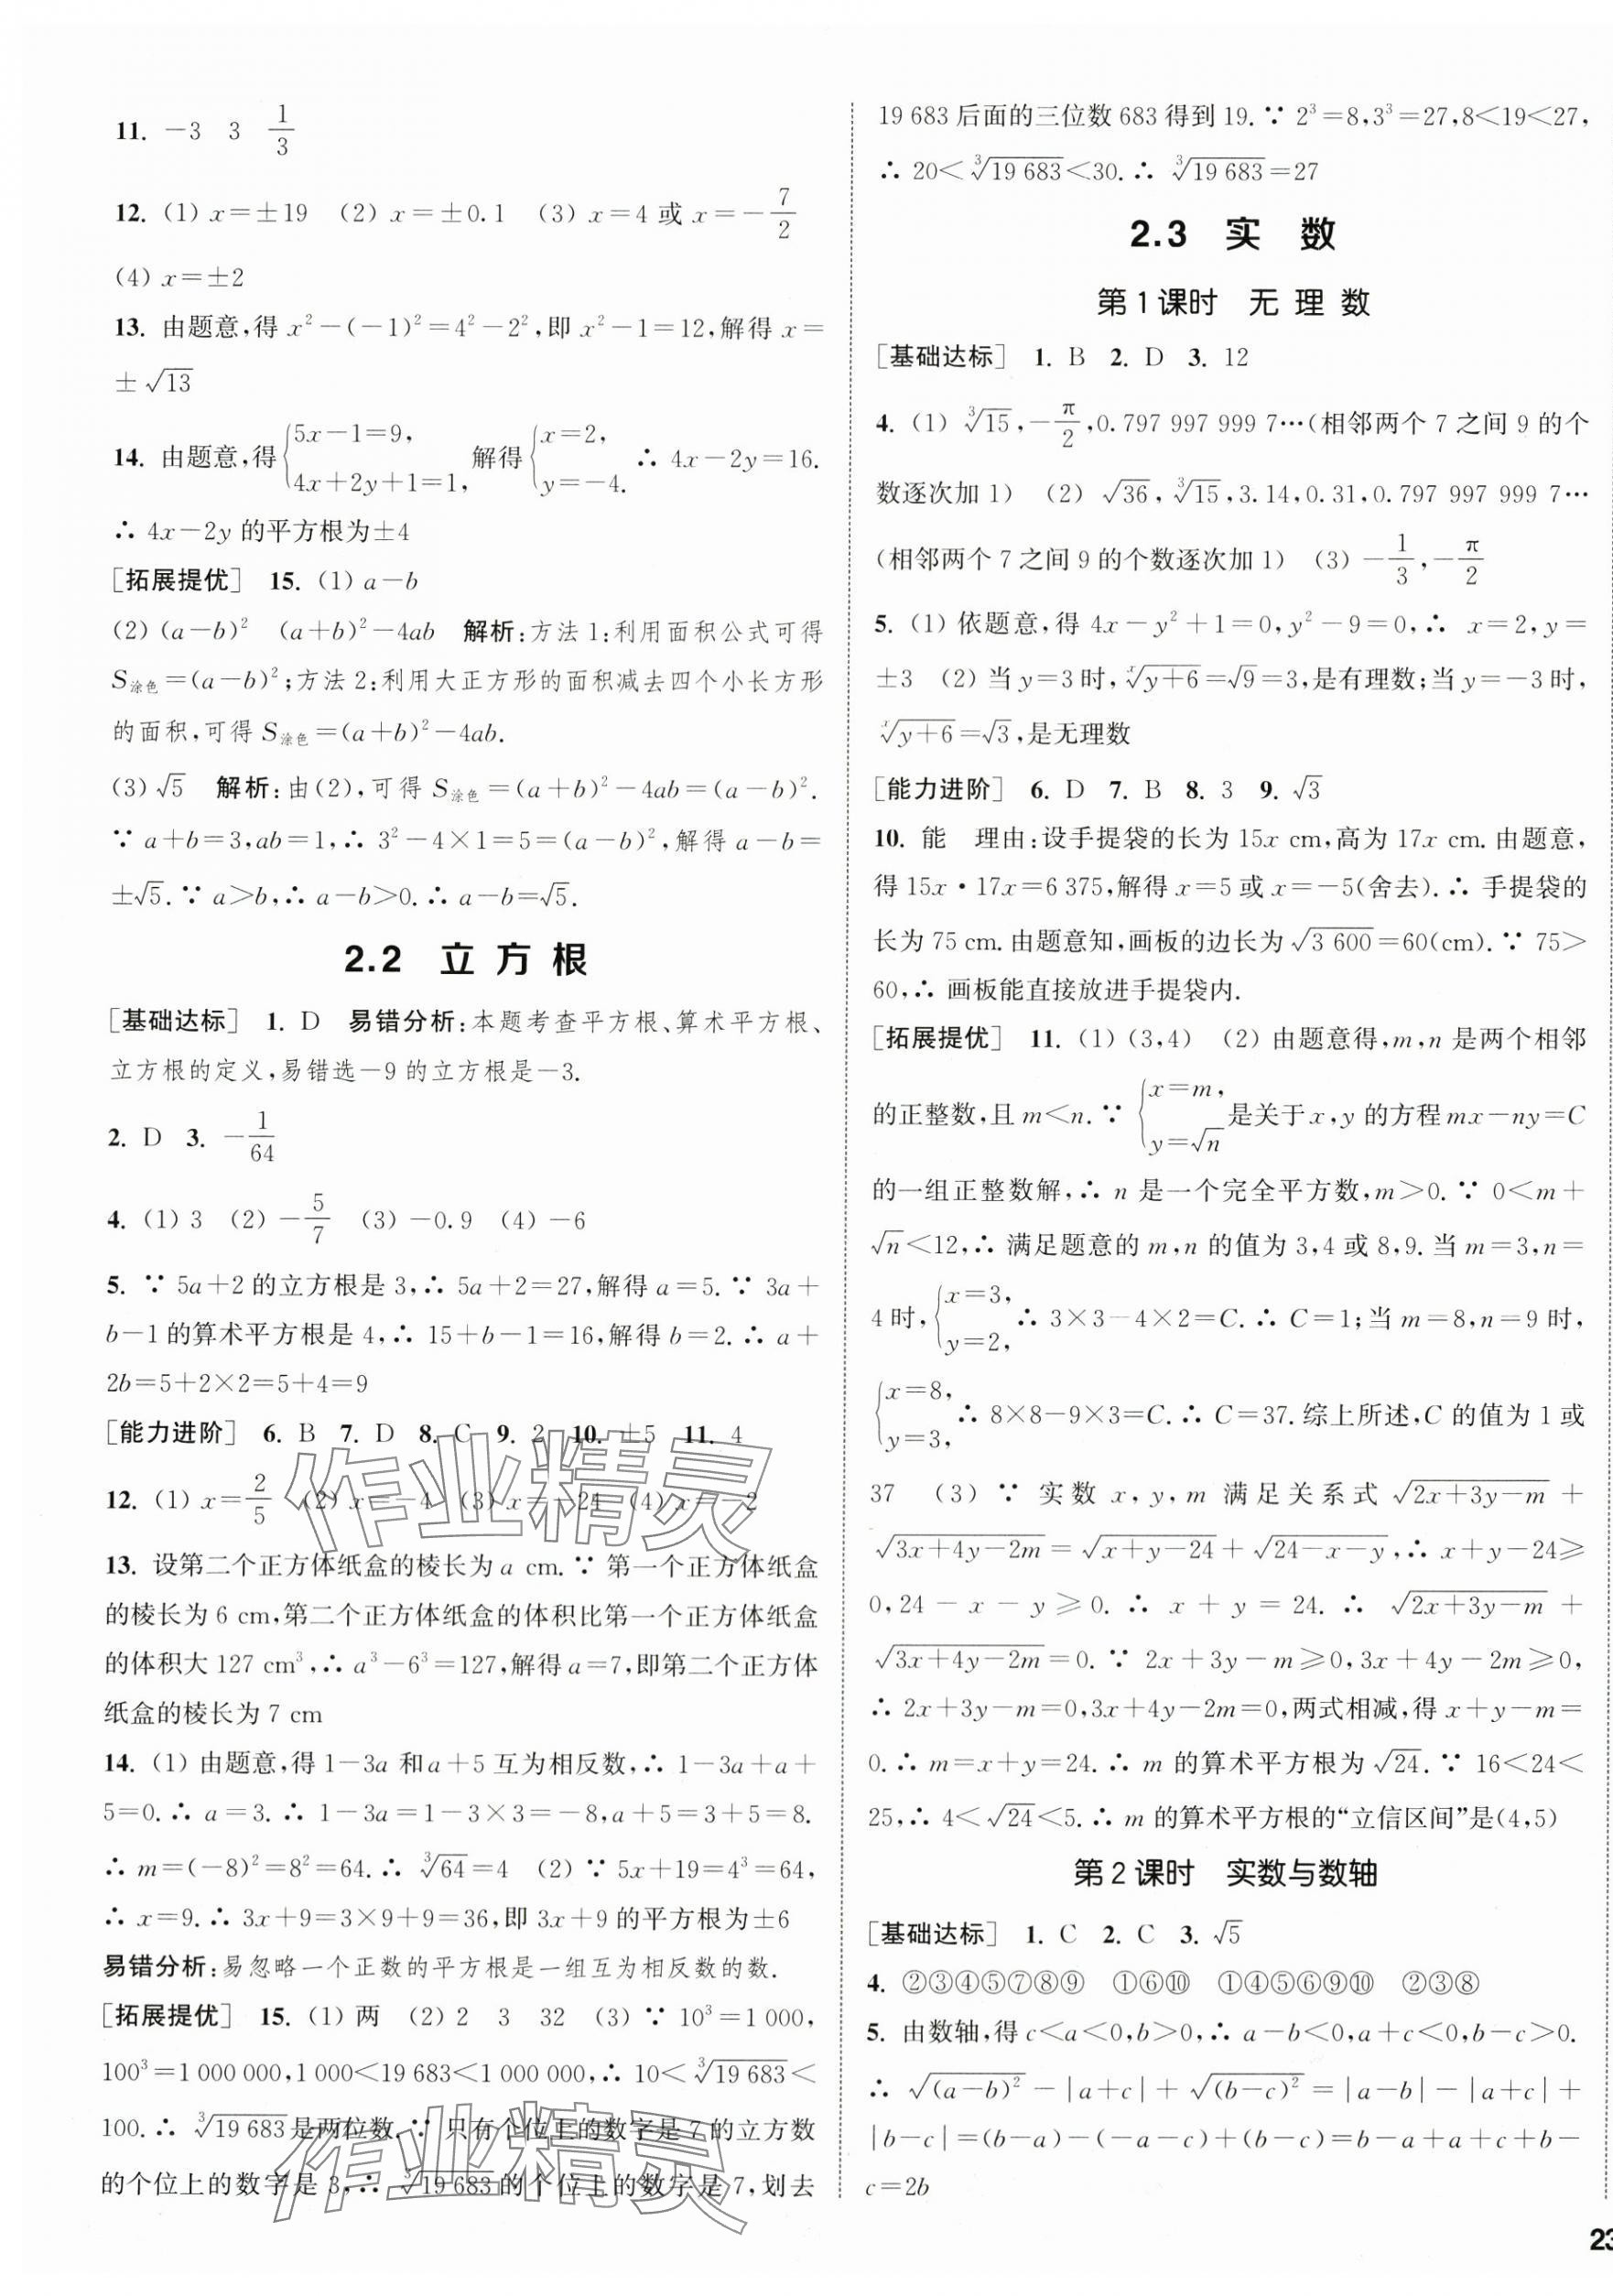 11. －3　3　1/3
12. (1) x＝±19　(2) x＝±0.1　(3) x＝4 或 x＝－7/2
(4) x＝±2
13. 由题意,得 x²－(－1)²＝4²－2²,即 x²－1＝12,解得 x＝
±√13
14. 由题意,得{5x－1＝9, 4x＋2y＋1＝1, 解得{x＝2, y＝－4. ∴ 4x－2y＝16.
∴ 4x－2y 的平方根为±4
[拓展提优]　15. (1) a－b
(2) (a－b)²　(a＋b)²－4ab　解析:方法1:利用面积公式可得
S涂色＝(a－b)²;方法2:利用大正方形的面积减去四个小长方形
的面积,可得 S涂色＝(a＋b)²－4ab.
(3) √5　解析:由(2),可得 S涂色＝(a＋b)²－4ab＝(a－b)².
∵ a＋b＝3,ab＝1,∴ 3²－4×1＝5＝(a－b)²,解得 a－b＝
±√5. ∵ a＞b,∴ a－b＞0. ∴ a－b＝√5.
2.2　立方根
[基础达标]　1. D　易错分析:本题考查平方根、算术平方根、
立方根的定义,易错选－9的立方根是－3.
2. D　3. －1/64
4. (1) 3　(2) －5/7　(3) －0.9　(4) －6
5. ∵ 5a＋2的立方根是3,∴ 5a＋2＝27,解得 a＝5. ∵ 3a＋
b－1的算术平方根是4,∴ 15＋b－1＝16,解得 b＝2. ∴ a＋
2b＝5＋2×2＝5＋4＝9
[能力进阶]　6. B　7. D　8. C　9. 2　10. ±5　11. 4
12. (1) x＝2/5　(2) x＝－4　(3) x＝－24　(4) x＝－2
13. 设第二个正方体纸盒的棱长为 a cm. ∵ 第一个正方体纸盒
的棱长为6 cm,第二个正方体纸盒的体积比第一个正方体纸盒
的体积大127 cm³,∴ a³－6³＝127,解得 a＝7,即第二个正方体
纸盒的棱长为7 cm
14. (1) 由题意,得1－3a 和 a＋5 互为相反数,∴ 1－3a＋a＋
5＝0. ∴ a＝3. ∴ 1－3a＝1－3×3＝－8,a＋5＝3＋5＝8.
∴ m＝(－8)²＝8²＝64. ∴ ³√64＝4　(2) ∵ 5x＋19＝4³＝64,
∴ x＝9. ∴ 3x＋9＝3×9＋9＝36,即3x＋9的平方根为±6
易错分析:易忽略一个正数的平方根是一组互为相反数的数.
[拓展提优]　15. (1) 两　(2) 2　3　32　(3) ∵ 10³＝1 000,
100³＝1 000 000,1 000＜19 683＜1 000 000,∴ 10＜³√19 683＜
100. ∴ ³√19 683是两位数. ∵ 只有个位上的数字是7的立方数
的个位上的数字是3,∴ ³√19 683的个位上的数字是7,划去
19 683后面的三位数683得到19. ∵ 2³＝8,3³＝27,8＜19＜27,
∴ 20＜³√19 683＜30. ∴ ³√19 683＝27
2.3　实　数
第1课时　无理数
[基础达标]　1. B　2. D　3. 12
4. (1) ³√15,－π/2,0.797 997 999 7…(相邻两个7之间9的个
数逐次加1)　(2) √36,³√15,3.14,0.31,0.797 997 999 7…
(相邻两个7之间9的个数逐次加1)　(3) －1/3,－π/2
5. (1) 依题意,得 4x－y²＋1＝0,y²－9＝0,∴ x＝2,y＝
±3　(2) 当 y＝3时,ˣ√y＋6＝√9＝3,是有理数;当 y＝－3时,
ˣ√y＋6＝√3,是无理数
[能力进阶]　6. D　7. B　8. 3　9. √3
10. 能　理由:设手提袋的长为15x cm,高为17x cm. 由题意,
得15x·17x＝6 375,解得 x＝5或 x＝－5(舍去). ∴ 手提袋的
长为75 cm. 由题意知,画板的边长为√3 600＝60(cm). ∵ 75＞
60,∴ 画板能直接放进手提袋内.
[拓展提优]　11. (1) (3,4)　(2) 由题意得,m,n 是两个相邻
的正整数,且 m＜n. ∵ {x＝m, y＝√n 是关于 x,y 的方程 mx－ny＝C
的一组正整数解,∴ n 是一个完全平方数,m＞0. ∵ 0＜m＋
√n＜12,∴ 满足题意的 m,n 的值为3,4或8,9. 当 m＝3,n＝
4时,{x＝3, y＝2, ∴ 3×3－4×2＝C. ∴ C＝1;当 m＝8,n＝9时,
{x＝8, y＝3, ∴ 8×8－9×3＝C. ∴ C＝37. 综上所述,C 的值为1或
37　(3) ∵ 实数 x,y,m 满足关系式√2x＋3y－m＋
√3x＋4y－2m＝√x＋y－24＋√24－x－y,∴ x＋y－24≥
0,24－x－y≥0. ∴ x＋y＝24. ∴ √2x＋3y－m＋
√3x＋4y－2m＝0. ∵ 2x＋3y－m≥0,3x＋4y－2m≥0,
∴ 2x＋3y－m＝0,3x＋4y－2m＝0,两式相减,得 x＋y－m＝
0. ∴ m＝x＋y＝24. ∴ m 的算术平方根为√24. ∵ 16＜24＜
25,∴ 4＜√24＜5. ∴ m 的算术平方根的“立信区间”是(4,5)
第2课时　实数与数轴
[基础达标]　1. C　2. C　3. √5
4. ②③④⑤⑦⑧⑨　①⑥⑩　①④⑤⑥⑨⑩　②③⑧
5. 由数轴,得 c＜a＜0,b＞0,∴ a－b＜0,a＋c＜0,b－c＞0.
∴ √(a－b)²－|a＋c|＋√(b－c)²＝|a－b|－|a＋c|＋
|b－c|＝(b－a)－(－a－c)＋(b－c)＝b－a＋a＋c＋b－
c＝2b
23
作业精灵
作业精灵